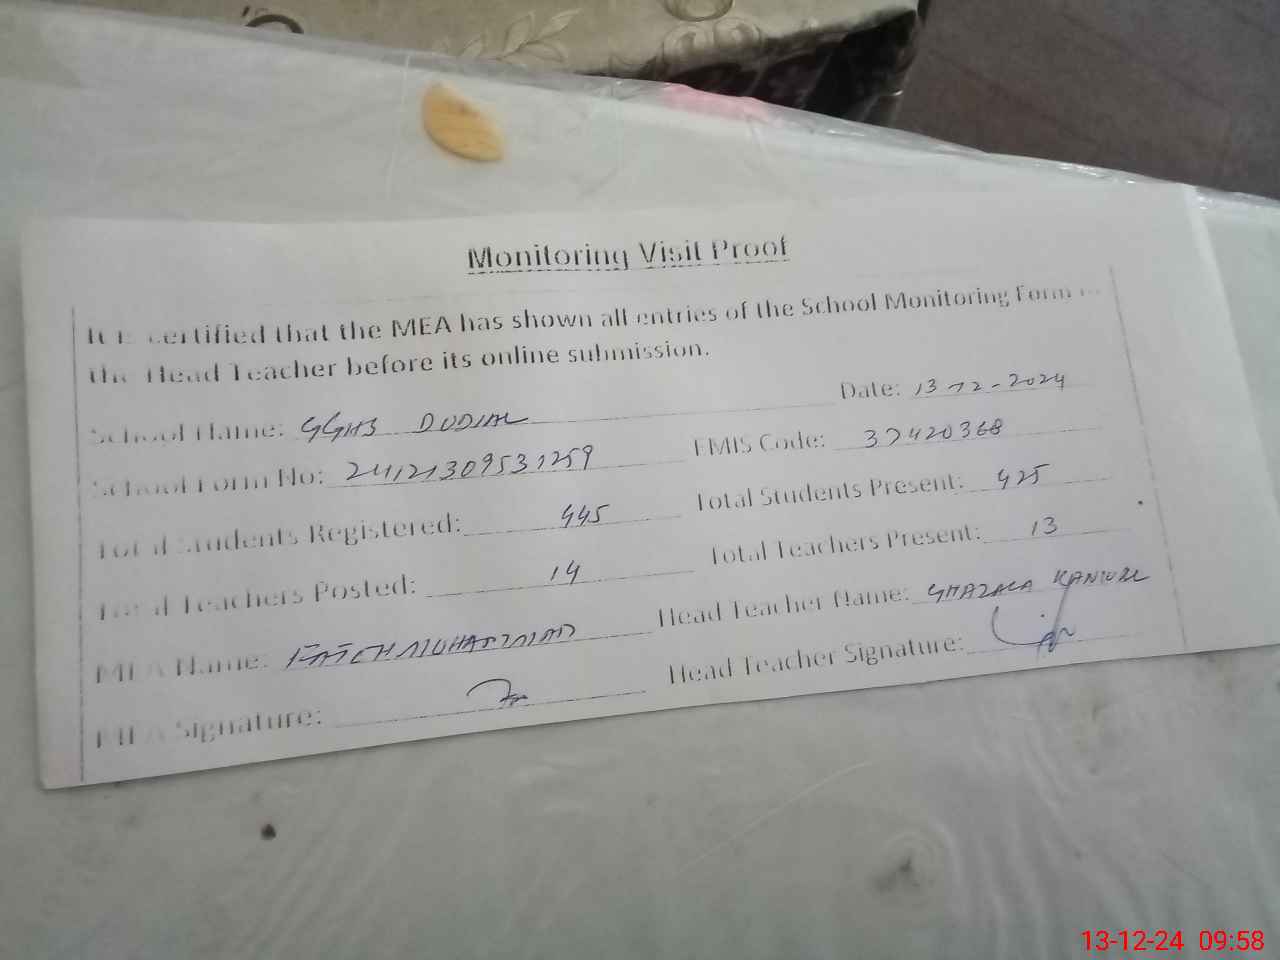 Monitoring Visit Proof
It is certified that the MEA has shown all entries of the School Monitoring Form to
the Head Teacher before its online submission.
School Name: GGHS DUDIAL Date: 13-12-2024
School Form No: 24121309531259 EMIS Code: 37420368
Total Students Registered: 445 Total Students Present: 425
Total Teachers Posted: 14 Total Teachers Present: 13
MEA Name: FATEH MUHAMMAD Head Teacher Name: GHAZALA KANWAL
MEA Signature: Head Teacher Signature:
13-12-24 09:58